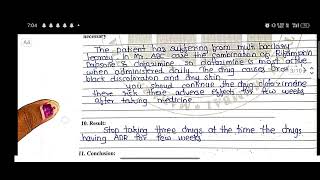 7:04
necessary
The patient has suffering from multi bacilary
leprosy. In Mr ABC case the combination of Rifampicin
Dapsone & clofazimine so clofazimine is most active
when administered daily. The drug causes
black discoloration and dry skin.
you should continue the drug clofazimine
these side these adverse effects for few weeks
after taking medicine
10. Result:
Stop taking three drugs at the time the drugs
having ADR for few weeks
11. Conclusion: